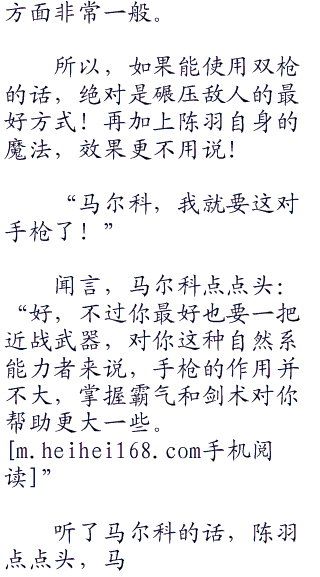 方面非常一般。
所以，如果能使用双枪
的话，绝对是碾压敌人的最
好方式！再加上陈羽自身的
魔法，效果更不用说！
“马尔科，我就要这对
手枪了！”
闻言，马尔科点点头：
“好，不过你最好也要一把
近战武器，对你这种自然系
能力者来说，手枪的作用并
不大，掌握霸气和剑术对你
帮助更大一些。
[m.heihei168.com手机阅
读]”
听了马尔科的话，陈羽
点点头，马